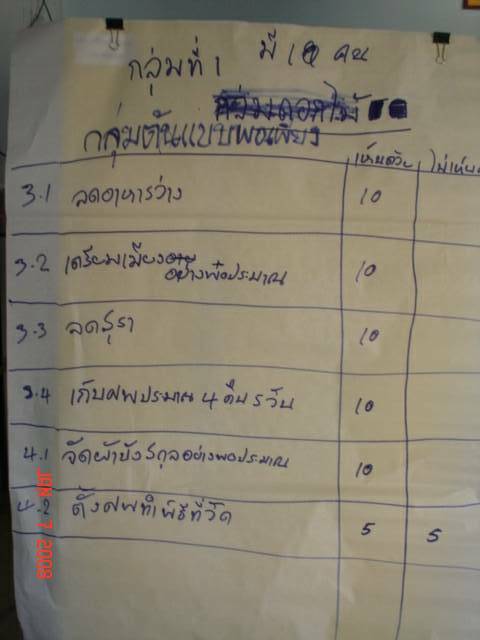 กลุ่มที่ 1 มี 10 คน
กลุ่มดอกไม้
กลุ่มต้นแบบพอเพียง
เห็นด้วย ไม่เห็น
3.1 ลดอาหารว่าง 10
3.2 เตรียมเมี่ยงอย่างพอประมาณ 10
3.3 ลดสุรา 10
3.4 เก็บศพประมาณ 4 คืน 5 วัน 10
4.1 จัดผ้าบังสกุลอย่างพอประมาณ 10
4.2 ตั้งศพทำพิธีที่วัด 5 5
JAN 7 2009